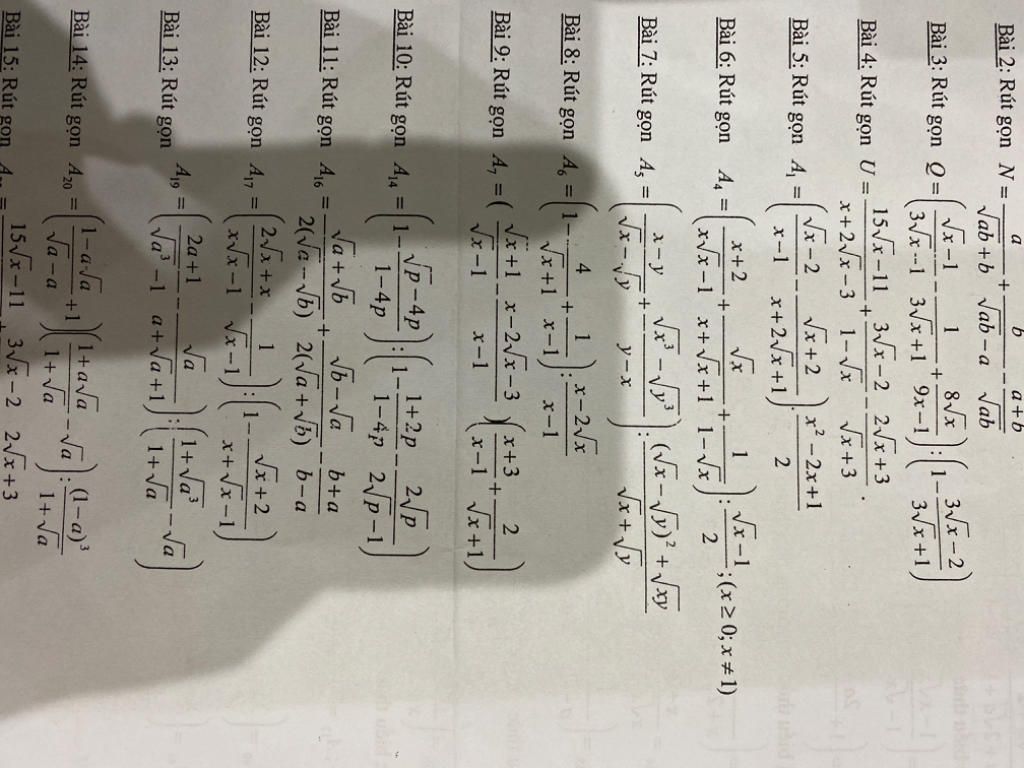 Bài 2: Rút gọn N = a/(√ab + b) + b/(√ab − a) − (a + b)/√ab
Bài 3: Rút gọn Q = ((√x − 1)/(3√x − 1) − 1/(3√x + 1) + 8√x/(9x − 1)) : (1 − (3√x − 2)/(3√x + 1))
Bài 4: Rút gọn U = (15√x − 11)/(x + 2√x − 3) + (3√x − 2)/(1 − √x) − (2√x + 3)/(√x + 3).
Bài 5: Rút gọn A₁ = ((√x − 2)/(x − 1) − (√x + 2)/(x + 2√x + 1)).(x² − 2x + 1)/2
Bài 6: Rút gọn A₄ = ((x + 2)/(x√x − 1) + √x/(x + √x + 1) + 1/(1 − √x)) : (√x − 1)/2 ; (x ≥ 0; x ≠ 1)
Bài 7: Rút gọn A₅ = ((x − y)/(√x − √y) + (√x³ − √y³)/(y − x)) : ((√x − √y)² + √xy)/(√x + √y)
Bài 8: Rút gọn A₆ = (1 − 4/(√x + 1) + 1/(x − 1)) : (x − 2√x)/(x − 1)
Bài 9: Rút gọn A₇ = ((√x + 1)/(√x − 1) − (x − 2√x − 3)/(x − 1))((x + 3)/(x − 1) + 2/(√x + 1))
Bài 10: Rút gọn A₁₄ = (1 − (√p − 4p)/(1 − 4p)) : (1 − (1 + 2p)/(1 − 4p) − 2√p/(2√p − 1))
Bài 11: Rút gọn A₁₆ = (√a + √b)/(2(√a − √b)) + (√b − √a)/(2(√a + √b)) − (b + a)/(b − a)
Bài 12: Rút gọn A₁₇ = ((2√x + x)/(x√x − 1) − 1/(√x − 1)) : (1 − (√x + 2)/(x + √x − 1))
Bài 13: Rút gọn A₁₉ = ((2a + 1)/(√a³ − 1) − √a/(a + √a + 1)) : ((1 + √a³)/(1 + √a) − √a)
Bài 14: Rút gọn A₂₀ = ((1 − a√a)/(√a − a) + 1)((1 + a√a)/(1 + √a) − √a) : (1 − a)³/(1 + √a)
Bài 15: Rút gọn 15√x − 11 3√x − 2 2√x + 3